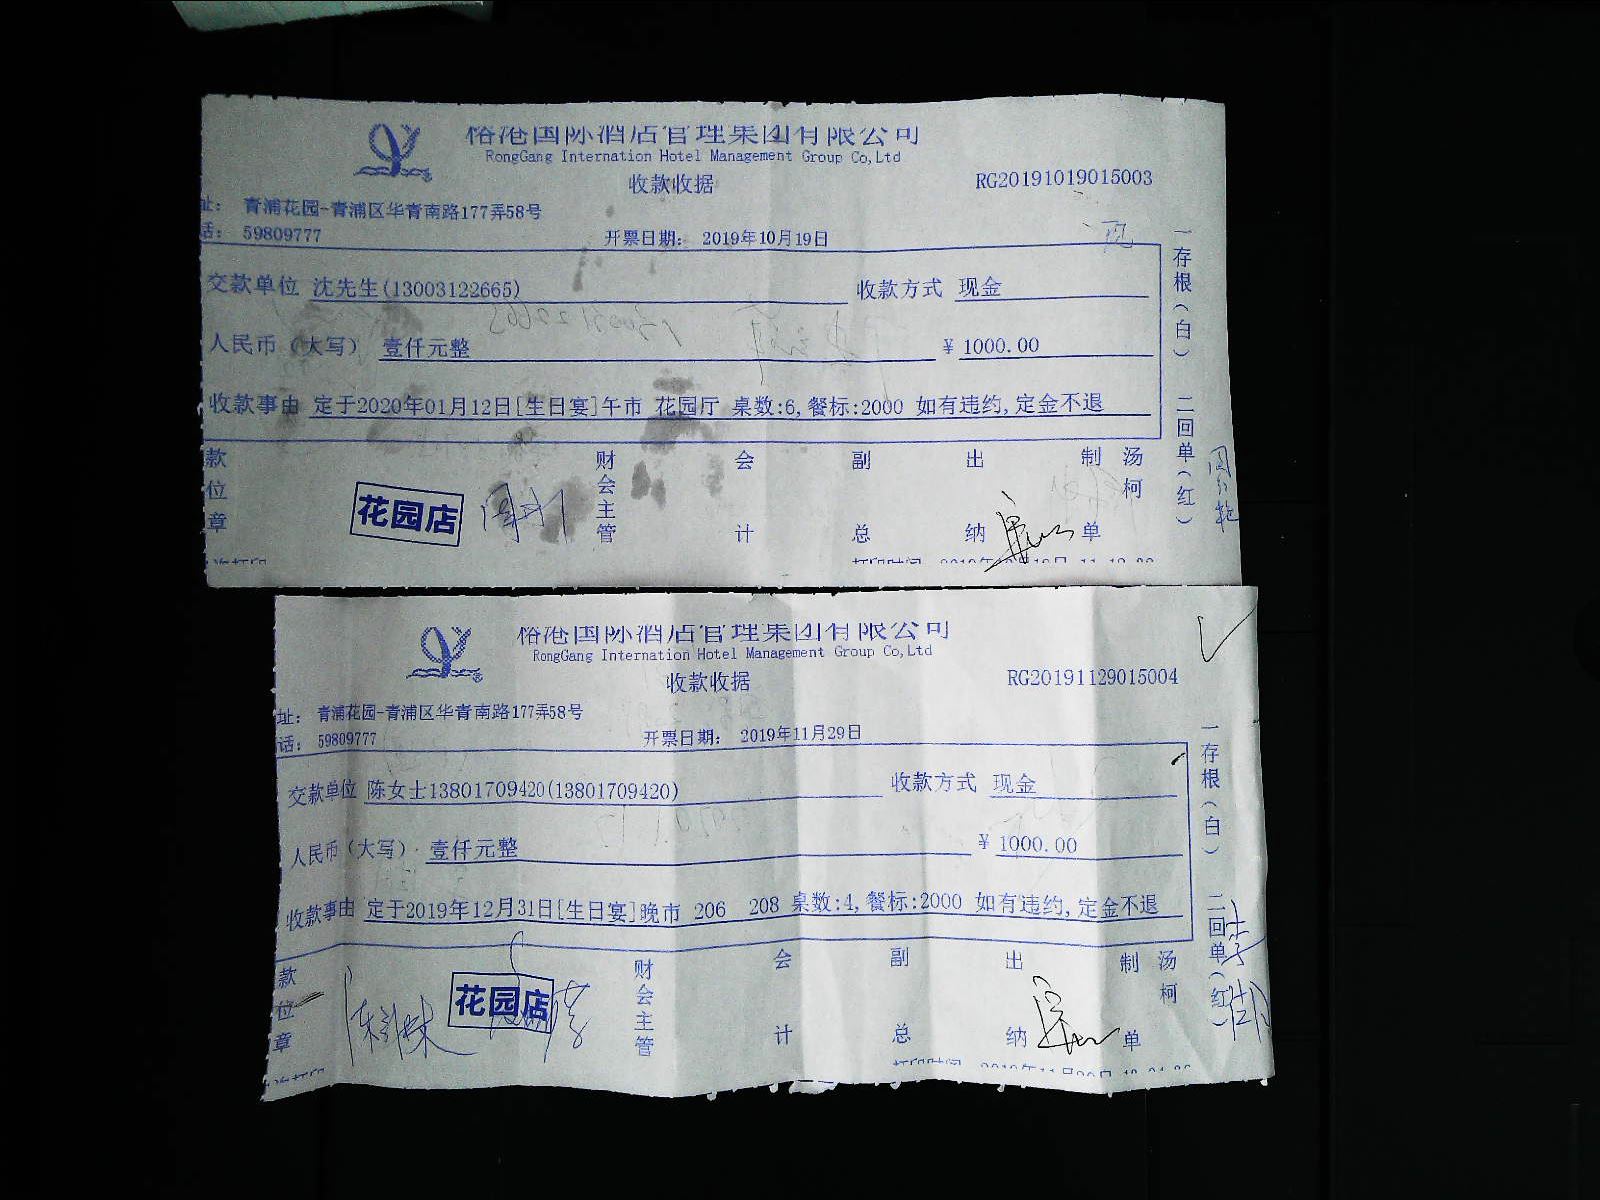 国际酒店管理集团有限公司
RongGang Internation Hotel Management Group Co,Ltd
收款收据
RG20191019015003
址: 青浦花园-青浦区华青南路177弄58号
话: 59809777
开票日期: 2019年10月19日
交款单位 沈先生(13003122665) 收款方式 现金
人民币(大写) 壹仟元整 ¥ 1000.00
收款事由 定于2020年01月12日[生日宴]午市 花园厅 桌数:6,餐标:2000 如有违约,定金不退
款位章 花园店 财会主管 会计 副总 出纳 制单 汤柯
一存根(白) 二回单(红)
国际酒店管理集团有限公司
RongGang Internation Hotel Management Group Co,Ltd
收款收据
RG20191129015004
址: 青浦花园-青浦区华青南路177弄58号
话: 59809777
开票日期: 2019年11月29日
交款单位 陈女士13801709420(13801709420) 收款方式 现金
人民币(大写) 壹仟元整 ¥ 1000.00
收款事由 定于2019年12月31日[生日宴]晚市 206 208 桌数:4,餐标:2000 如有违约,定金不退
款位章 花园店 财会主管 会计 副总 出纳 制单 汤柯
一存根(白) 二回单(红)